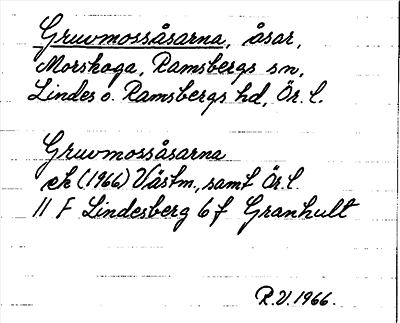 Gruvmossåsarna, åsar,
Morskoga, Ramsbergs sn,
Lindes o. Ramsbergs hd, Ör. l.
Gruvmossåsarna
ek (1966) Västm., samt Ör. l.
11 F Lindesberg 6 f Granhult
R.V. 1966.